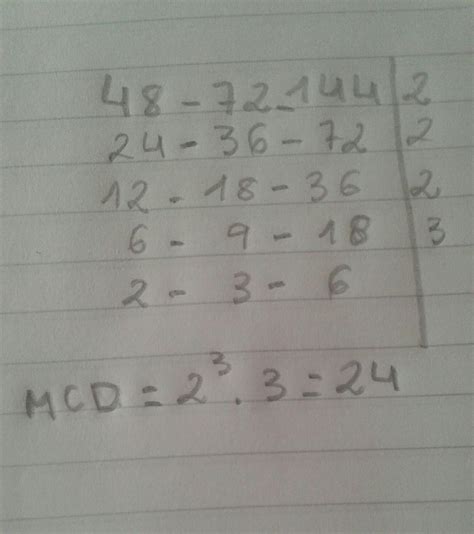 48 - 72 - 144 | 2
24 - 36 - 72 | 2
12 - 18 - 36 | 2
6 - 9 - 18 | 3
2 - 3 - 6 |
MCD = 2³ . 3 = 24